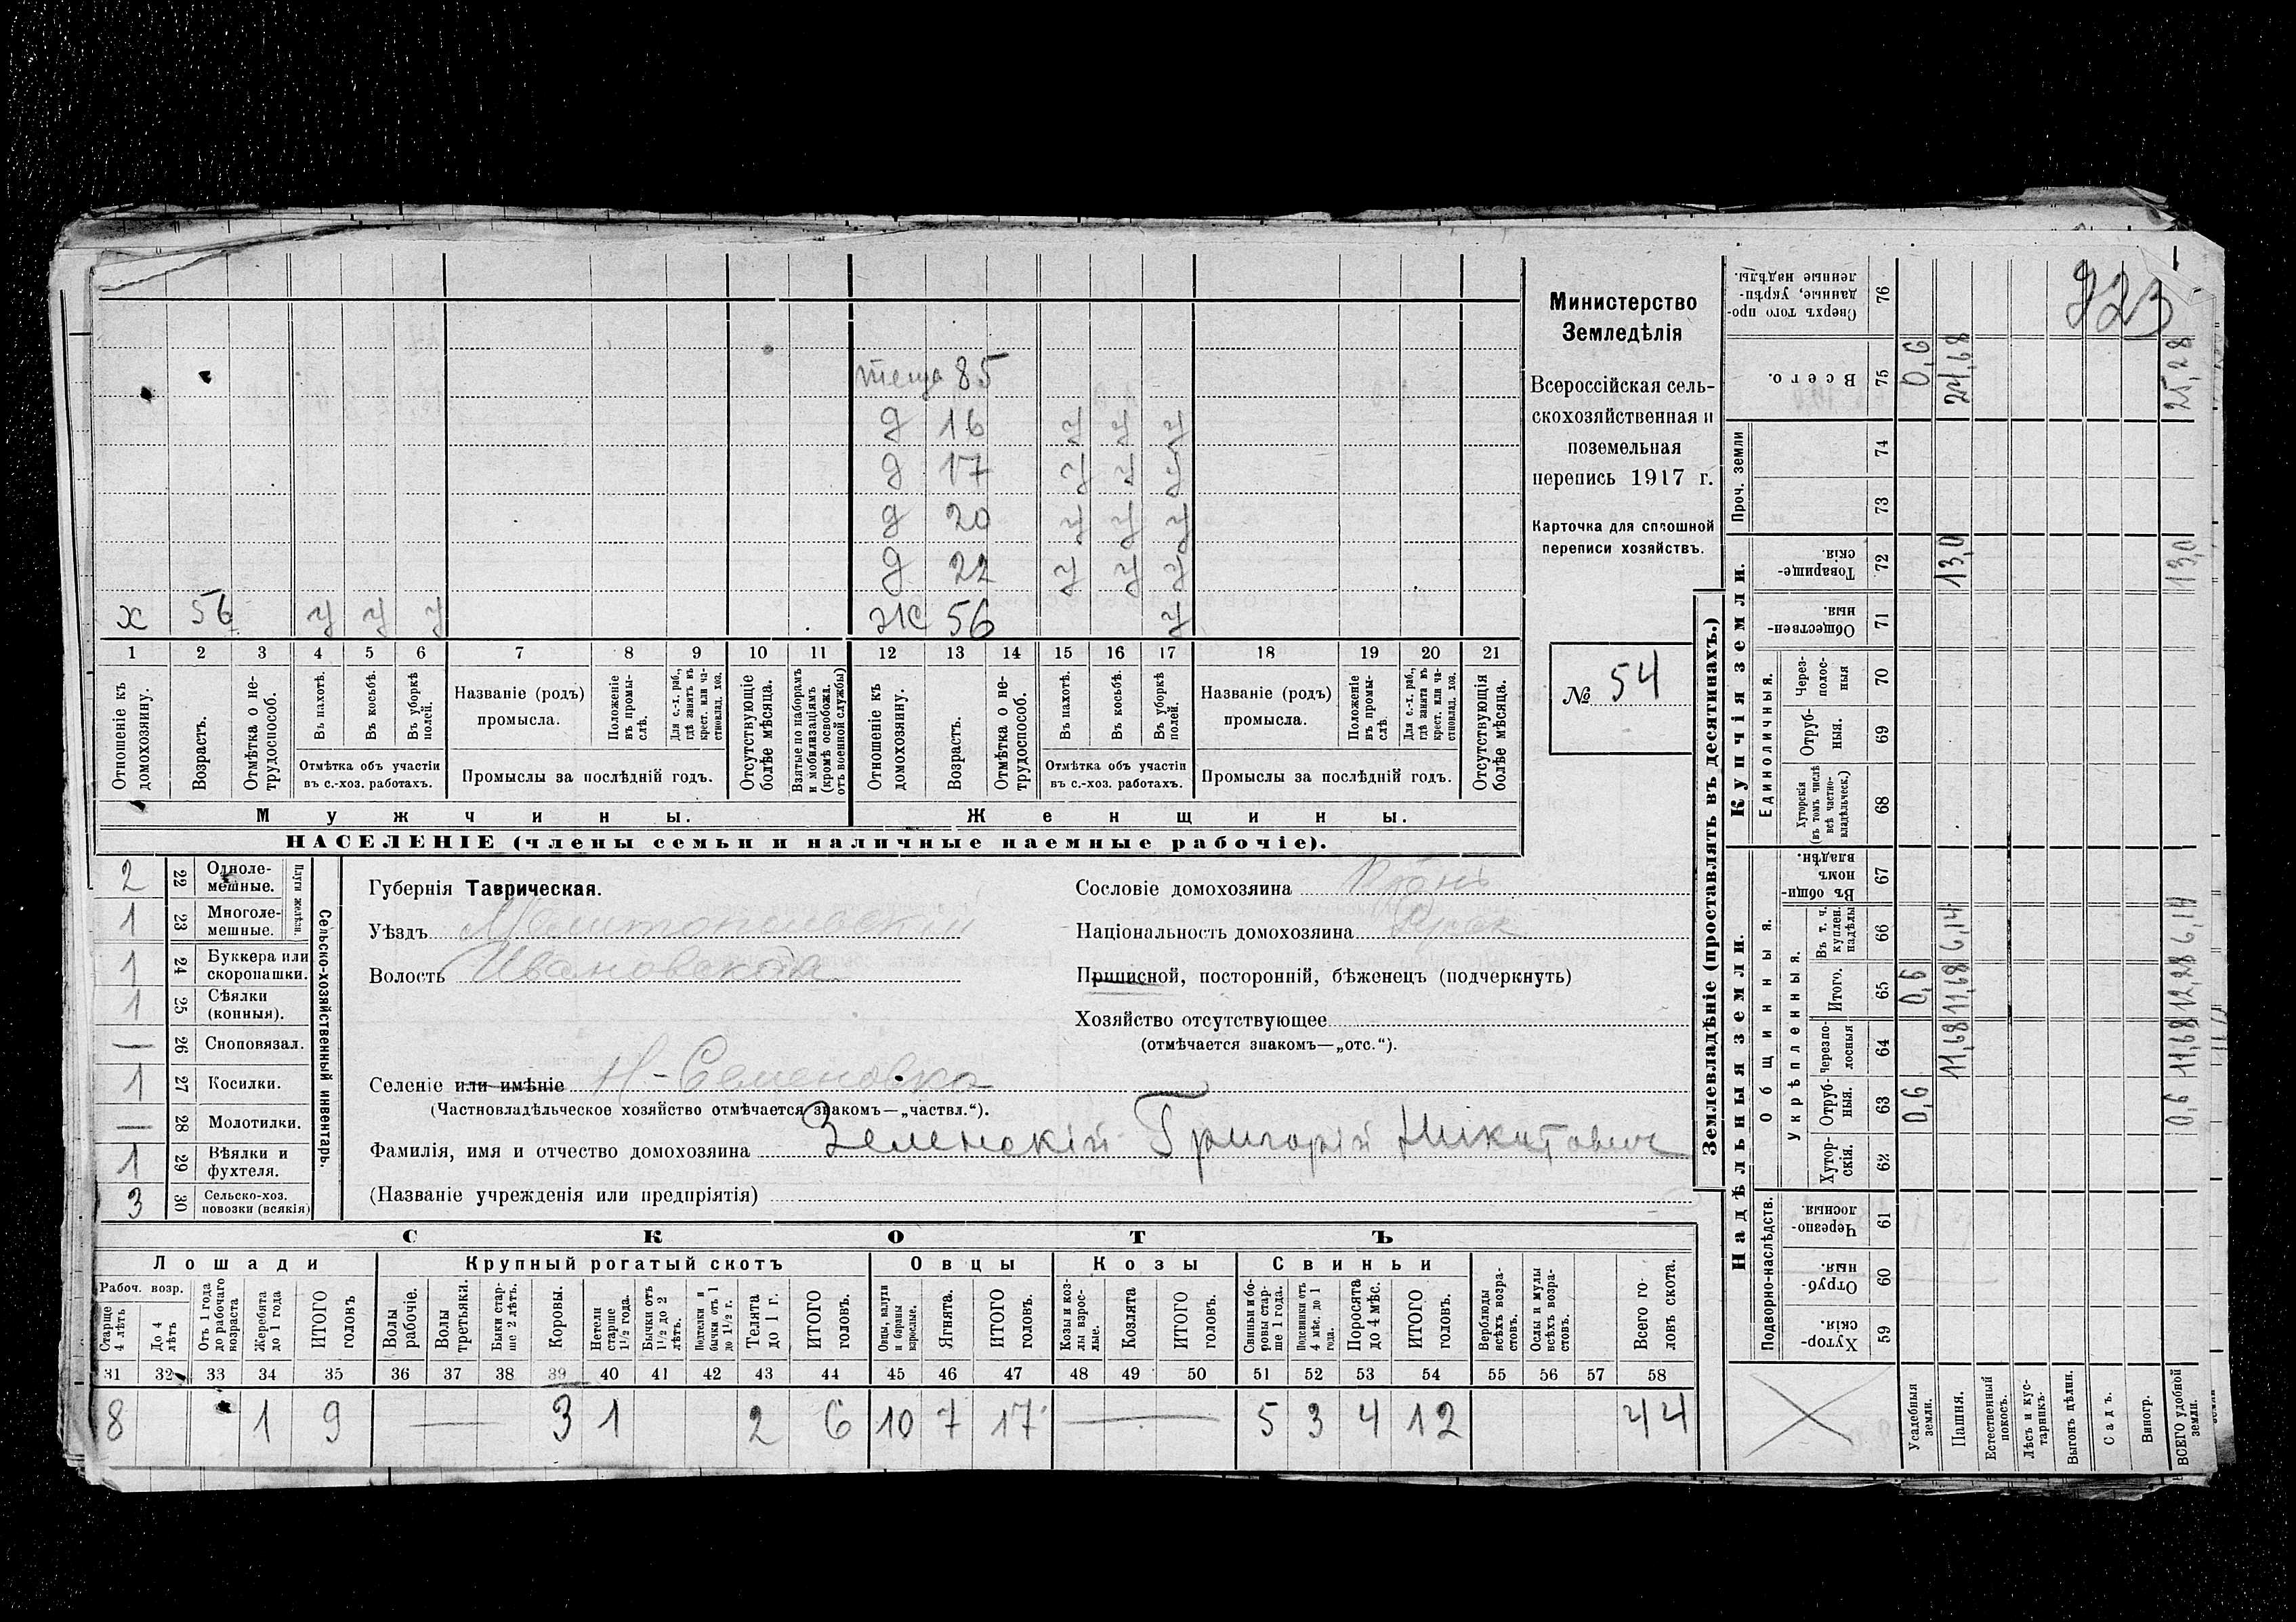 теща 85
д 16 у у у
д 17 у у у
д 20 у у у
д 22 у у у
х 56 у у у ж 56 у
1 2 3 4 5 6 7 8 9 10 11 12 13 14 15 16 17 18 19 20 21
Отношеніе къ домохозяину.
Возрастъ.
Отмѣтка о не-
трудоспособ.
Въ пахотѣ.
Въ косьбѣ.
Въ уборкѣ
полей.
Отмѣтка объ участіи
въ с.-хоз. работахъ.
Названіе (родъ)
промысла.
Положеніе
въ промы-
слѣ.
Для с.-х. раб.,
гдѣ занятъ въ
крест. или ча-
стновлад. хоз.
Промыслы за послѣдній годъ.
Отсутствующіе
болѣе мѣсяца.
Взятые по наборамъ
и мобилизаціямъ
(кромѣ освобожд.
отъ военной службы)
Отношеніе къ
домохозяину.
Возрастъ.
Отмѣтка о не-
трудоспособ.
Въ пахотѣ.
Въ косьбѣ.
Въ уборкѣ
полей.
Отмѣтка объ участіи
въ с.-хоз. работахъ.
Названіе (родъ)
промысла.
Положеніе
въ промы-
слѣ.
Для с.-х. раб.,
гдѣ занята въ
крест. или ча-
стновлад. хоз.
Промыслы за послѣдній годъ.
Отсутствующія
болѣе мѣсяца.
Мужчины. Женщины.
НАСЕЛЕНІЕ (члены семьи и наличные наемные рабочіе).
Министерство
Земледѣлія
Всероссійская сель-
скохозяйственная и
поземельная
перепись 1917 г.
Карточка для сплошной
переписи хозяйствъ.
№ 54
2 22 Одноле-
мешные.
1 23 Многоле-
мешные.
Плуги желѣзн.
1 24 Буккера или
скоропашки.
1 25 Сѣялки
(конныя).
— 26 Сноповязал.
1 27 Косилки.
— 28 Молотилки.
1 29 Вѣялки и
фухтеля.
3 30 Сельско-хоз.
повозки (всякія)
Сельско-хозяйственный инвентарь.
Губернія Таврическая.
Уѣздъ Мелитопольскій
Волость Ивановская
Сословіе домохозяина
Національность домохозяина
Приписной, посторонній, бѣженецъ (подчеркнуть)
Хозяйство отсутствующее
(отмѣчается знакомъ—„отс.“).
Селеніе или имѣніе Н-Семеновка
(Частновладѣльческое хозяйство отмѣчается знакомъ—„частвл.“).
Фамилія, имя и отчество домохозяина Зеленскій Григорій Никитович
(Названіе учрежденія или предпріятія)
СКОТЪ
Лошади Крупный рогатый скотъ Овцы Козы Свиньи
Рабоч. возр.
Старше
4 лѣтъ
До 4
лѣтъ
Отъ 1 года
до рабочаго
возраста
Жеребята
до 1 года
ИТОГО
головъ
Волы
рабочіе.
Волы
третьяки.
Быки стар-
ше 2 лѣтъ.
Коровы.
Нетели
старше
1½ года.
Бычки отъ
1½ до 2
лѣтъ.
Подтелки и
бычки отъ 1
до 1½ г.
Телята
до 1 г.
ИТОГО
головъ.
Овцы, валухи
и бараны
взрослые.
Ягнята.
ИТОГО
головъ.
Козы и коз-
лы взрос-
лые.
Козлята
ИТОГО
головъ.
Свиньи и бо-
ровы стар-
ше 1 года.
Подсвинки отъ
4 мѣс. до 1
года.
Поросята
до 4 мѣс.
ИТОГО
головъ.
Верблюды
всѣхъ возра-
стовъ.
Ослы и мулы
всѣхъ возра-
стовъ.
Всего го-
ловъ скота.
31 32 33 34 35 36 37 38 39 40 41 42 43 44 45 46 47 48 49 50 51 52 53 54 55 56 57 58
8 1 9 — 3 1 2 6 10 7 17 — 5 3 4 12 44
Землевладѣніе (проставлять въ десятинахъ.)
Надѣльныя земли. Купчія земли. Проч. земли
Подворно-наслѣдств.
Общинныя.
Укрѣпленныя.
Единоличныя.
Хутор-
скія. 59
Отруб-
ныя. 60
Черезпо-
лосныя. 61
Хутор-
скія. 62
Отруб-
ныя. 63
Черезпо-
лосныя 64
Итого. 65
Въ т. ч.
куплен.
надѣлы 66
Въ общи-
номъ
владѣн. 67
Хуторскія
(въ томъ числѣ
всѣ частно-
владѣльческ.) 68
Отруб-
ныя. 69
Через-
полос-
ныя 70
Обществен-
ныя. 71
Товарище-
скія. 72
73
74
Всего. 75
Сверхъ того про-
данные, укрѣп-
ленные надѣлы. 76
923
Усадебныя
земли. 0,6 0,6 0,6
Пашня. 11,68 11,68 6,14 13,0 24,68
Естественный
покосъ.
Лѣсъ и кус-
тарникъ.
Выгонъ цѣлин.
Садъ.
Виногр.
ВСЕГО удобной
земли. 0,6 11,68 12,28 6,14 13,0 25,28